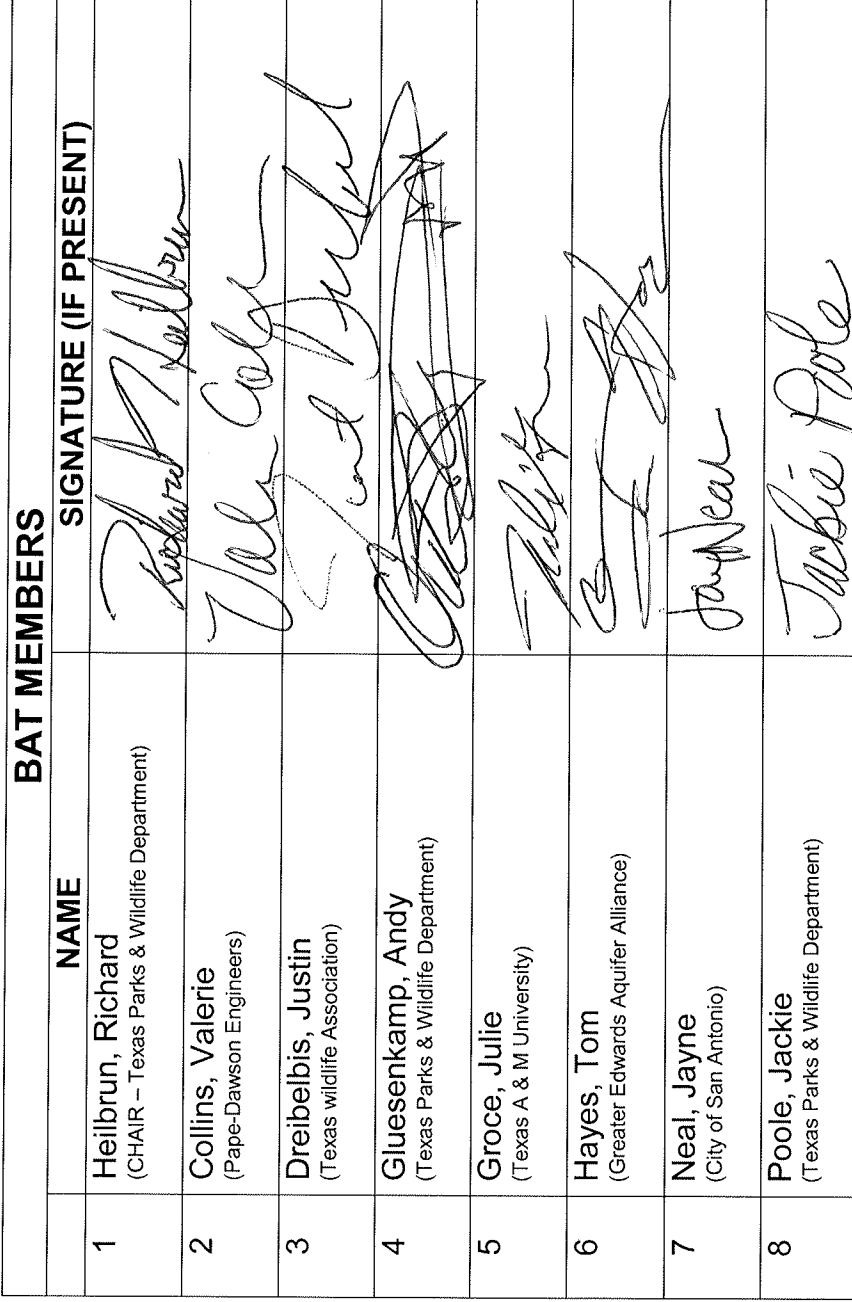 BAT MEMBERS
NAME
SIGNATURE (IF PRESENT)
1
Heilbrun, Richard
(CHAIR – Texas Parks & Wildlife Department)
Richard Heilbrun
2
Collins, Valerie
(Pape-Dawson Engineers)
3
Dreibelbis, Justin
(Texas wildlife Association)
4
Gluesenkamp, Andy
(Texas Parks & Wildlife Department)
5
Groce, Julie
(Texas A & M University)
6
Hayes, Tom
(Greater Edwards Aquifer Alliance)
7
Neal, Jayne
(City of San Antonio)
Jayne Neal
8
Poole, Jackie
(Texas Parks & Wildlife Department)
Jackie Poole